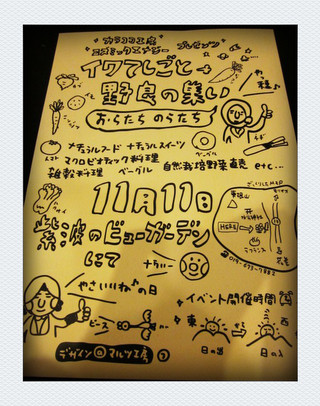 カラコロ工房
エゴミックエナジー プレゼンツ
イワてしごと+
野良の集い
おらたち のらたち
やっ
種
トマト
メチュラルフード ナチュラルスイーツ
マクロビオテック料理 自然栽培野菜直売 etc...
雑穀料理 ベーグル
11月11日
紫波のビューガーデン
にて
HERE
ラフランス
やさいいね♪の日
ナウい
ピース
イベント開催時間
東 から 西
日の出 日の入
デザイン@マルツ工房